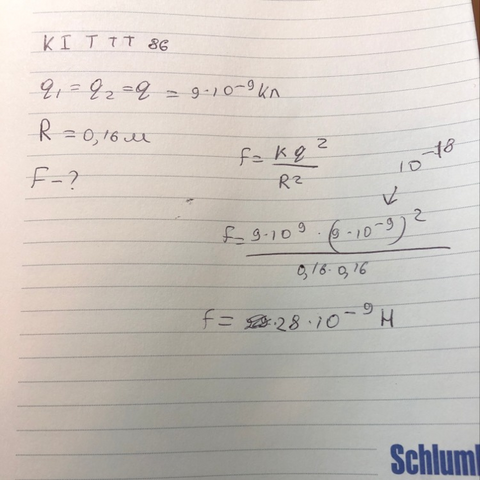 K I T T T 86
q₁ = q₂ = q = 9·10⁻⁹ Кл
R = 0,16 м
F – ?
f = Kq²/R²
10⁻¹⁸
f = 9·10⁹ · (9·10⁻⁹)² / 0,16·0,16
f = 28·10⁻⁹ H
Schluml